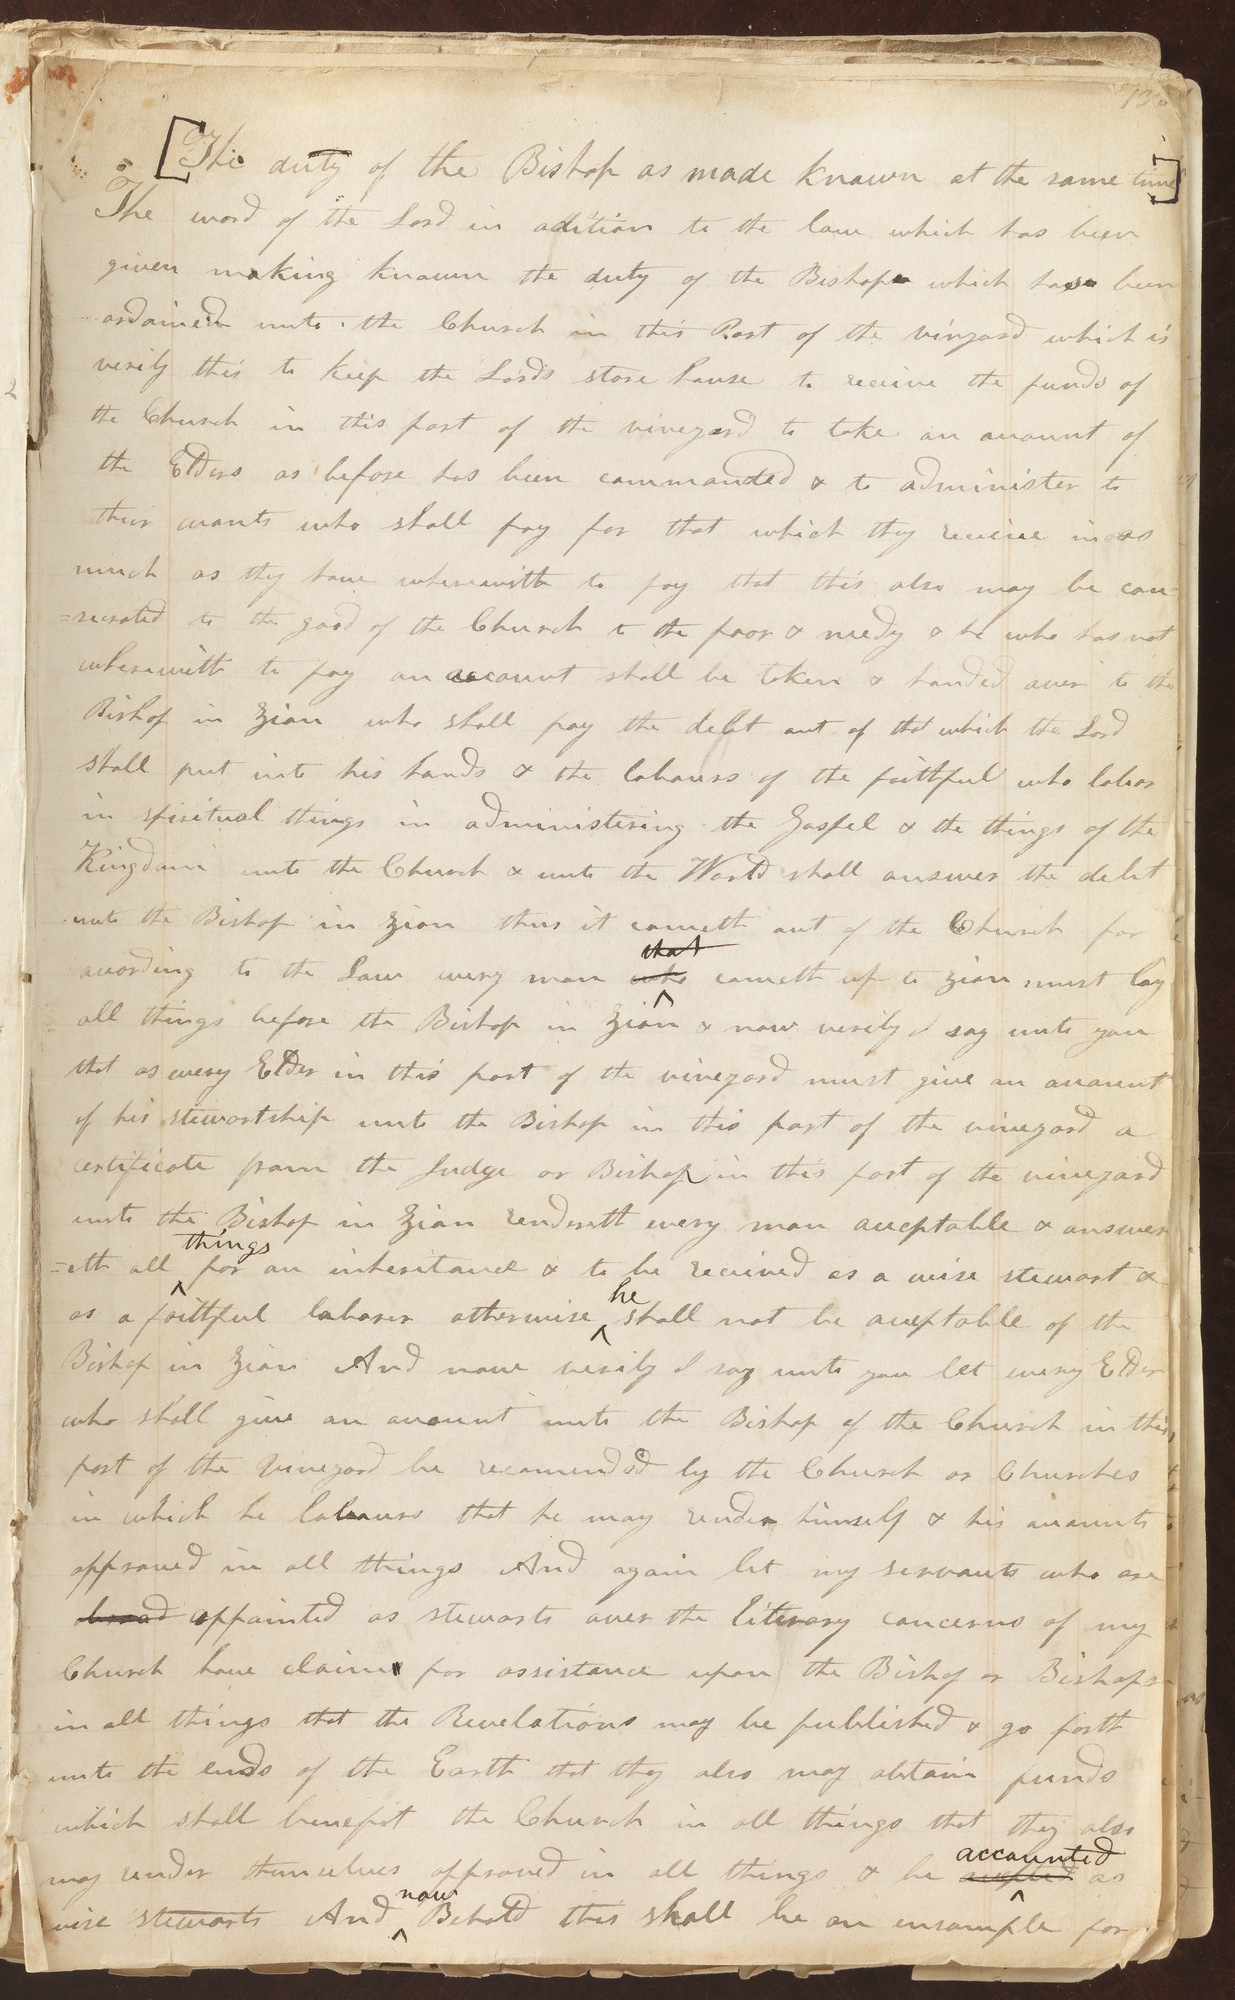 [The duty of the Bishop as made known at the same time]
The word of the Lord in adition to the law which has been
given making known the duty of the Bishop which has been
ordained unto the Church in this Part of the vinyard which is
verily this to keep the Lords store house to receive the funds of
the Church in this part of the vineyard to take an account of
the Elders as before has been commanded & to administer to
their wants who shall pay for that which they receive in as
much as they have wherewith to pay that this also may be con-
=secrated to the good of the Church to the poor & needy & he who has not
wherewith to pay an account shall be taken & handed over to the
Bishop in Zion who shall pay the debt out of that which the Lord
shall put into his hands & the labours of the faithful who labor
in spiritual things in administering the Gospel & the things of the
Kingdom unto the Church & unto the World shall answer the debt
unto the Bishop in Zion thus it cometh out of the Church for
that
acording to the Law every man who cometh up to Zion must lay
all things before the Bishop in Zion & now verily I say unto you
that as every Elder in this part of the vineyard must give an account
of his stewartship unto the Bishop in this part of the vineyard a
certificate from the Judge or Bishop in this part of the vineyard
unto the Bishop in Zion rendereth every man acceptable & answer
things
=eth all for an inheritance & to be received as a wise stewart &
he
as a faithful laborer otherwise shall not be acceptable of the
Bishop in Zion And now verily I say unto you let every Elder
who shall give an account unto the Bishop of the Church in this
part of the vineyard be recomended by the Church or Churches
in which he labours that he may render himself & his accounts
approved in all things And again let my servants who are
appointed as stewarts over the literary concerns of my
Church have claim for assistance upon the Bishop or Bishops
in all things that the Revelations may be published & go forth
unto the ends of the Earth that they also may obtain funds
which shall benefit the Church in all things that they also
accounted
may render themselves approved in all things & be as
now
wise stewarts And Behold this shall be an ensample for